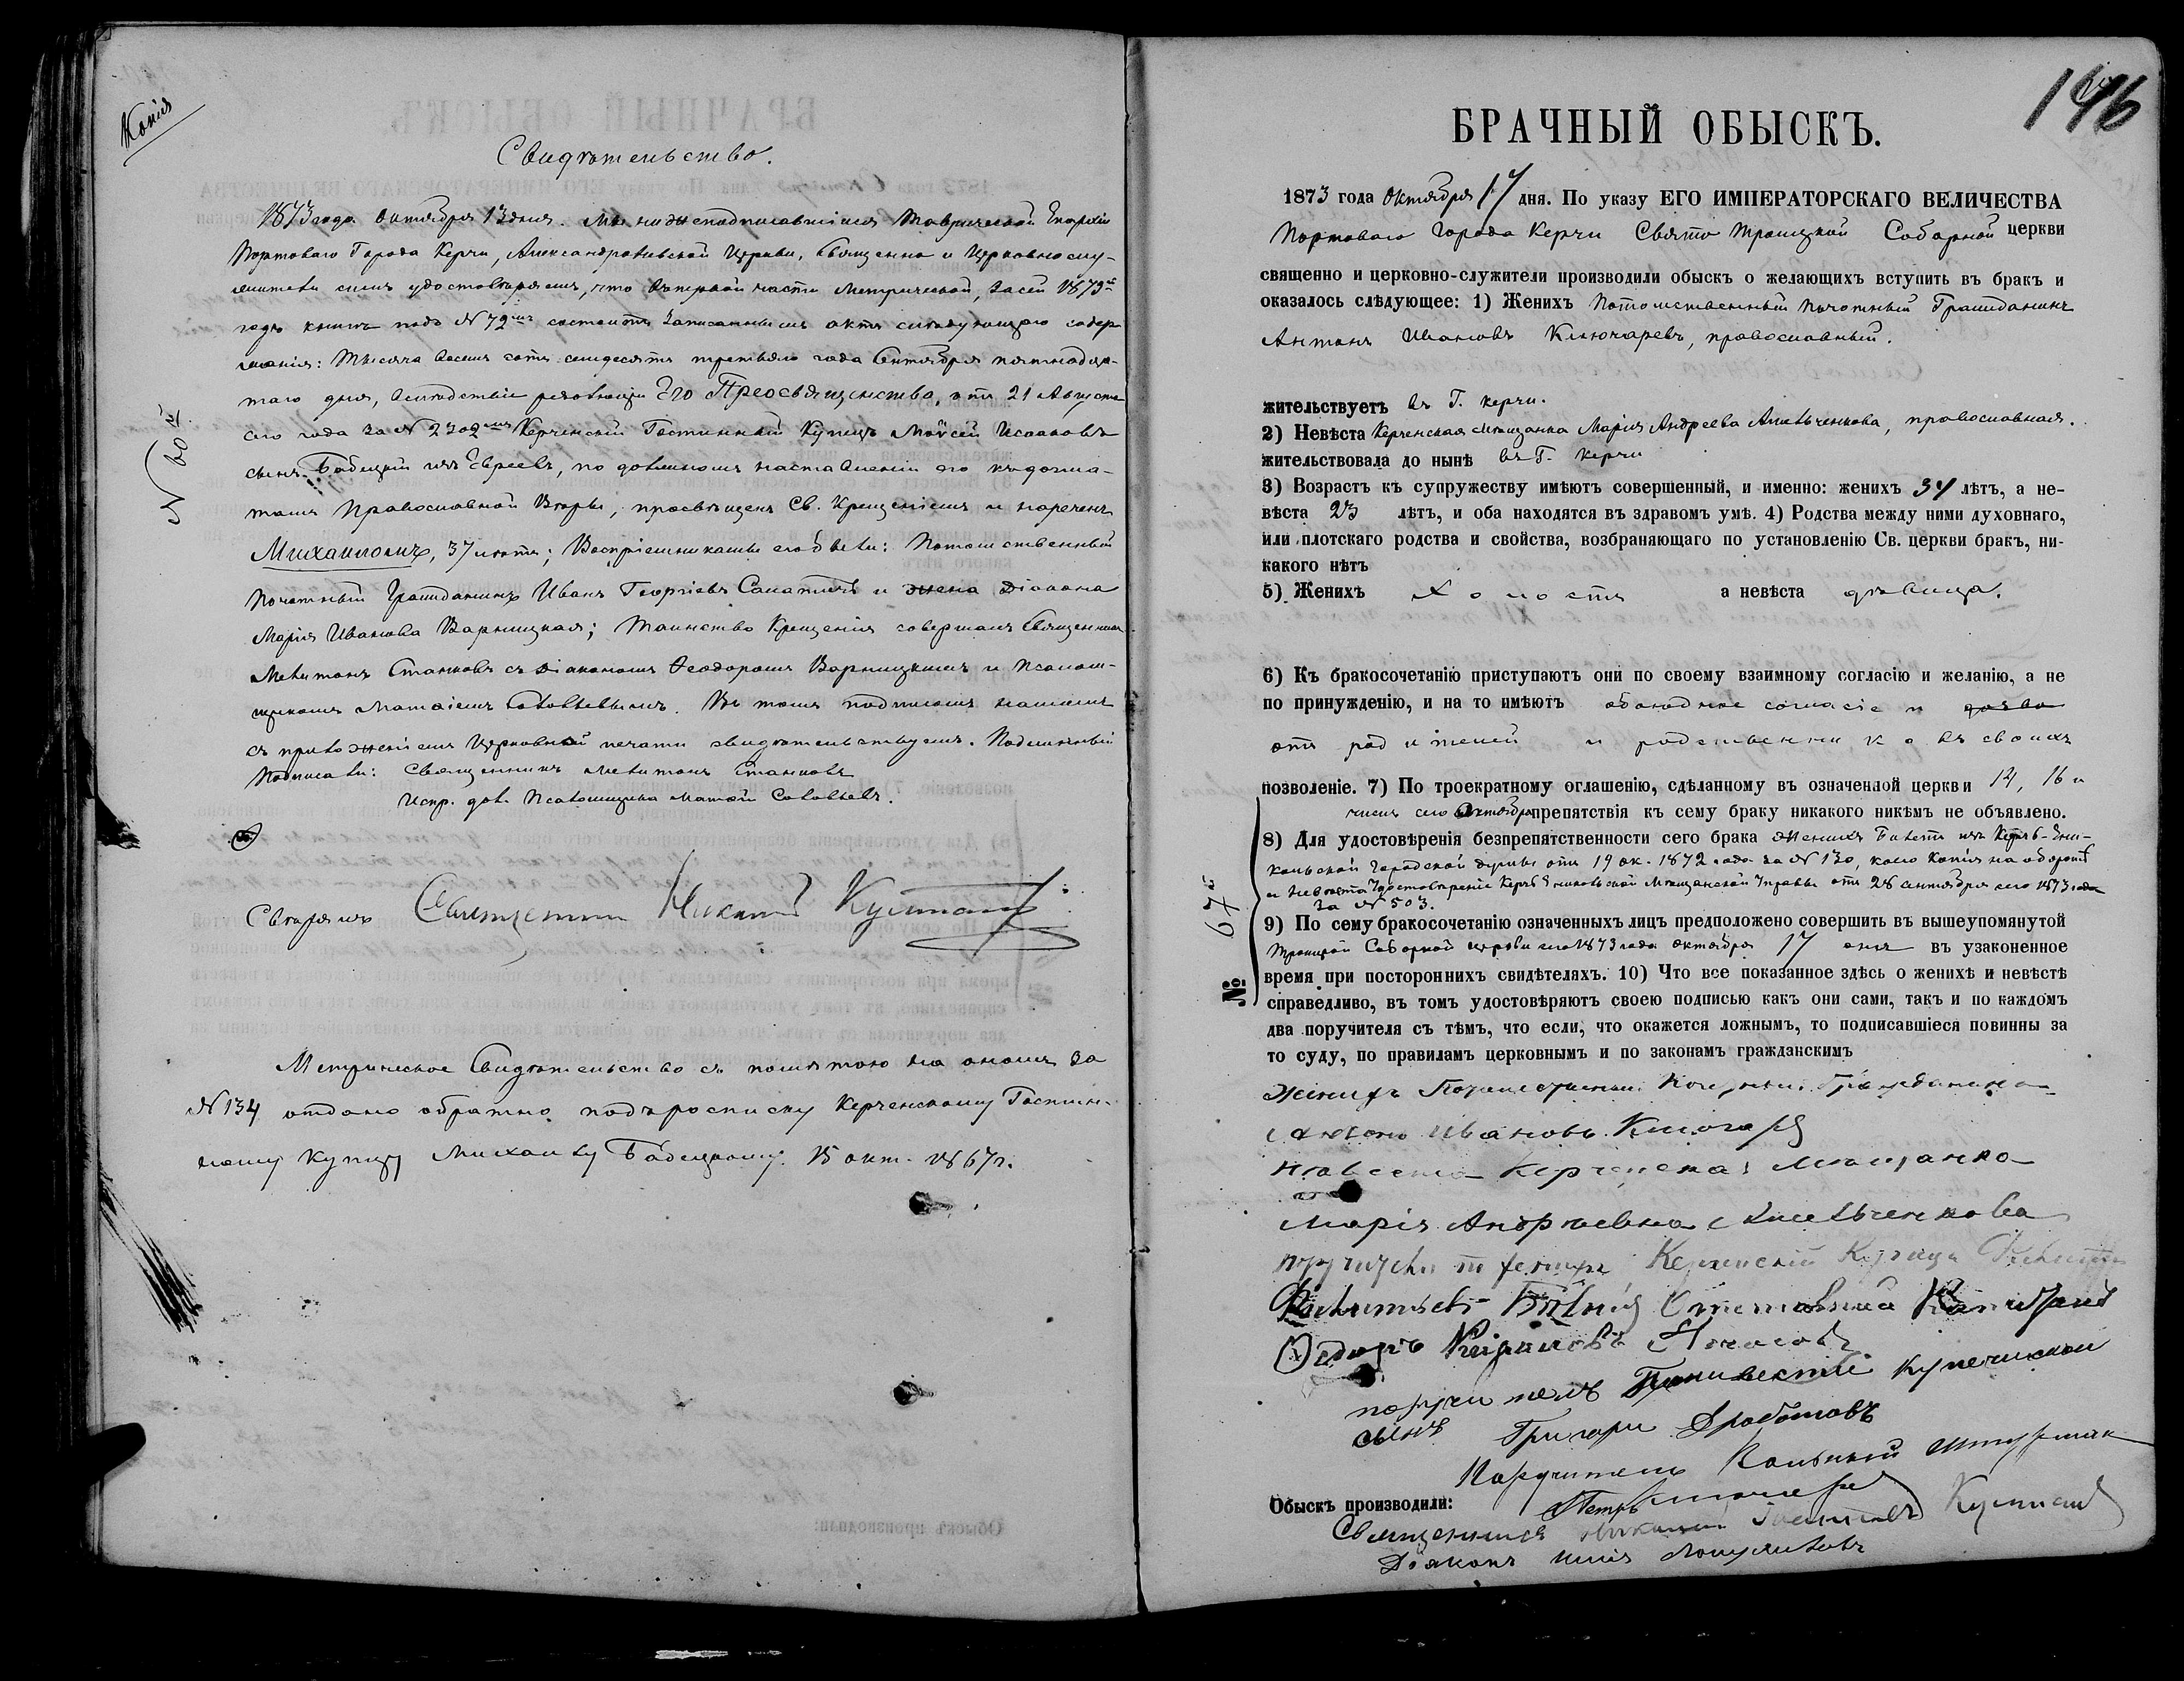 Копія
Свидѣтельство.
1873 года Октября 13 дня. Мы нижеподписавшіися Таврической Епархіи
Портоваго Города Керчи, Александроневской Церкви, Священно и Церковнослу-
жители симъ удостовѣряемъ, что въ первой части Метрической, за сей 1873й
годъ книгѣ подъ № 72мъ состоитъ записаннымъ актъ слѣдующаго содер-
жанія: Тысяча восемь сотъ семдесятъ третьяго года Сентября пятнадца-
таго дня, вслѣдствіе резолюціи Его Преосвященства, отъ 21 Августа
сего года за № 2302мъ Керченскій Гостинный Купецъ Мойсей Исааковъ
сынъ Бабецкій изъ Евреевъ, по должномъ наставленіи его въ догма-
тахъ Православной Вѣры, просвѣщенъ Св. Крещеніемъ и нареченъ
Михаиломъ, 37 лѣтъ; Воспріемниками его были: Потомственный
Почетный Гражданинъ Иванъ Георгіевъ и жена Діакона
Марія Иванова Варницкая; Таинство Крещенія совершалъ Священникъ
Мелитонъ Станковъ съ Діакономъ Ѳеодоромъ Варницкимъ и Псалом-
щикомъ Матѳіемъ Соловьевымъ. Въ томъ подписомъ нашимъ
съ приложеніемъ Церковной печати свидѣтельствуемъ. Подлинный
Подписали: Священникъ Мелитонъ Станковъ
Испр. дол. Псаломщика Матѳій Соловьевъ.
Свѣрялъ Священникъ Никитай
Метрическое Свидѣтельство съ помѣтою на ономъ за
№ 134 отдано обратно подъ росписку Керченскому Гостин-
ному Купцу Михаилу Бабецкому. 15 окт.
146
БРАЧНЫЙ ОБЫСКЪ.
1873 года Октября 17 дня. По указу ЕГО ИМПЕРАТОРСКАГО ВЕЛИЧЕСТВА
Портоваго Города Керчи Свято Троицкой Соборной церкви
священно и церковно-служители производили обыскъ о желающихъ вступить въ бракъ и
оказалось слѣдующее: 1) Женихъ Потомственный Почотный Гражданинъ
Антонъ Ивановъ Ключаревъ, православный.
жительствуетъ въ Г. Керчи.
2) Невѣста Керченская мѣщанка Марія Андреева, православная.
жительствовала до нынѣ въ Г. Керчи
3) Возрастъ къ супружеству имѣютъ совершенный, и именно: женихъ 34 лѣтъ, а не-
вѣста 23 лѣтъ, и оба находятся въ здравомъ умѣ. 4) Родства между ними духовнаго,
или плотскаго родства и свойства, возбраняющаго по установленію Св. церкви бракъ, ни-
какого нѣтъ
5) Женихъ холостъ а невѣста дѣвица.
6) Къ бракосочетанію приступаютъ они по своему взаимному согласію и желанію, а не
по принужденію, и на то имѣютъ обоюдное согласіе и
отъ родителей и родственниковъ своихъ
позволеніе. 7) По троекратному оглашенію, сдѣланному въ означенной церкви 14, 16 и
числ сего Октября препятствія къ сему браку никакого никѣмъ не объявлено.
8) Для удостовѣренія безпрепятственности сего брака Женихъ Билетъ изъ Керчь-Ени-
кольской Городской думы отъ 19 ок. 1872 года за № 130, коего Копія на оборотѣ
и Невѣста Удостовѣреніе Керчь Еникольской Мѣщанской Управы отъ 28 сентября сего 1873 года
за № 503.
9) По сему бракосочетанію означенныхъ лицъ предположено совершить въ вышеупомянутой
Троицкой Соборной церкви сего 1873 года Октября 17 дня въ узаконенное
№ 67й
время при постороннихъ свидѣтеляхъ. 10) Что все показанное здѣсь о женихѣ и невѣстѣ
справедливо, въ томъ удостовѣряютъ своею подписью какъ они сами, такъ и по каждомъ
два поручителя съ тѣмъ, что если, что окажется ложнымъ, то подписавшіеся повинны за
то суду, по правиламъ церковнымъ и по законамъ гражданскимъ
Женихъ Потомственный Почетный Гражданинъ
Антонъ Ивановъ
Невеста Керченская Мѣщанка
Марія Андреевна
Керченскій Купецъ
Отставной
поручитель По невесте Купеческой
сынъ Григори
Поручитель Вольный Штурман
Петръ
Обыскъ производили:
Священникъ
Діаконъ Илія